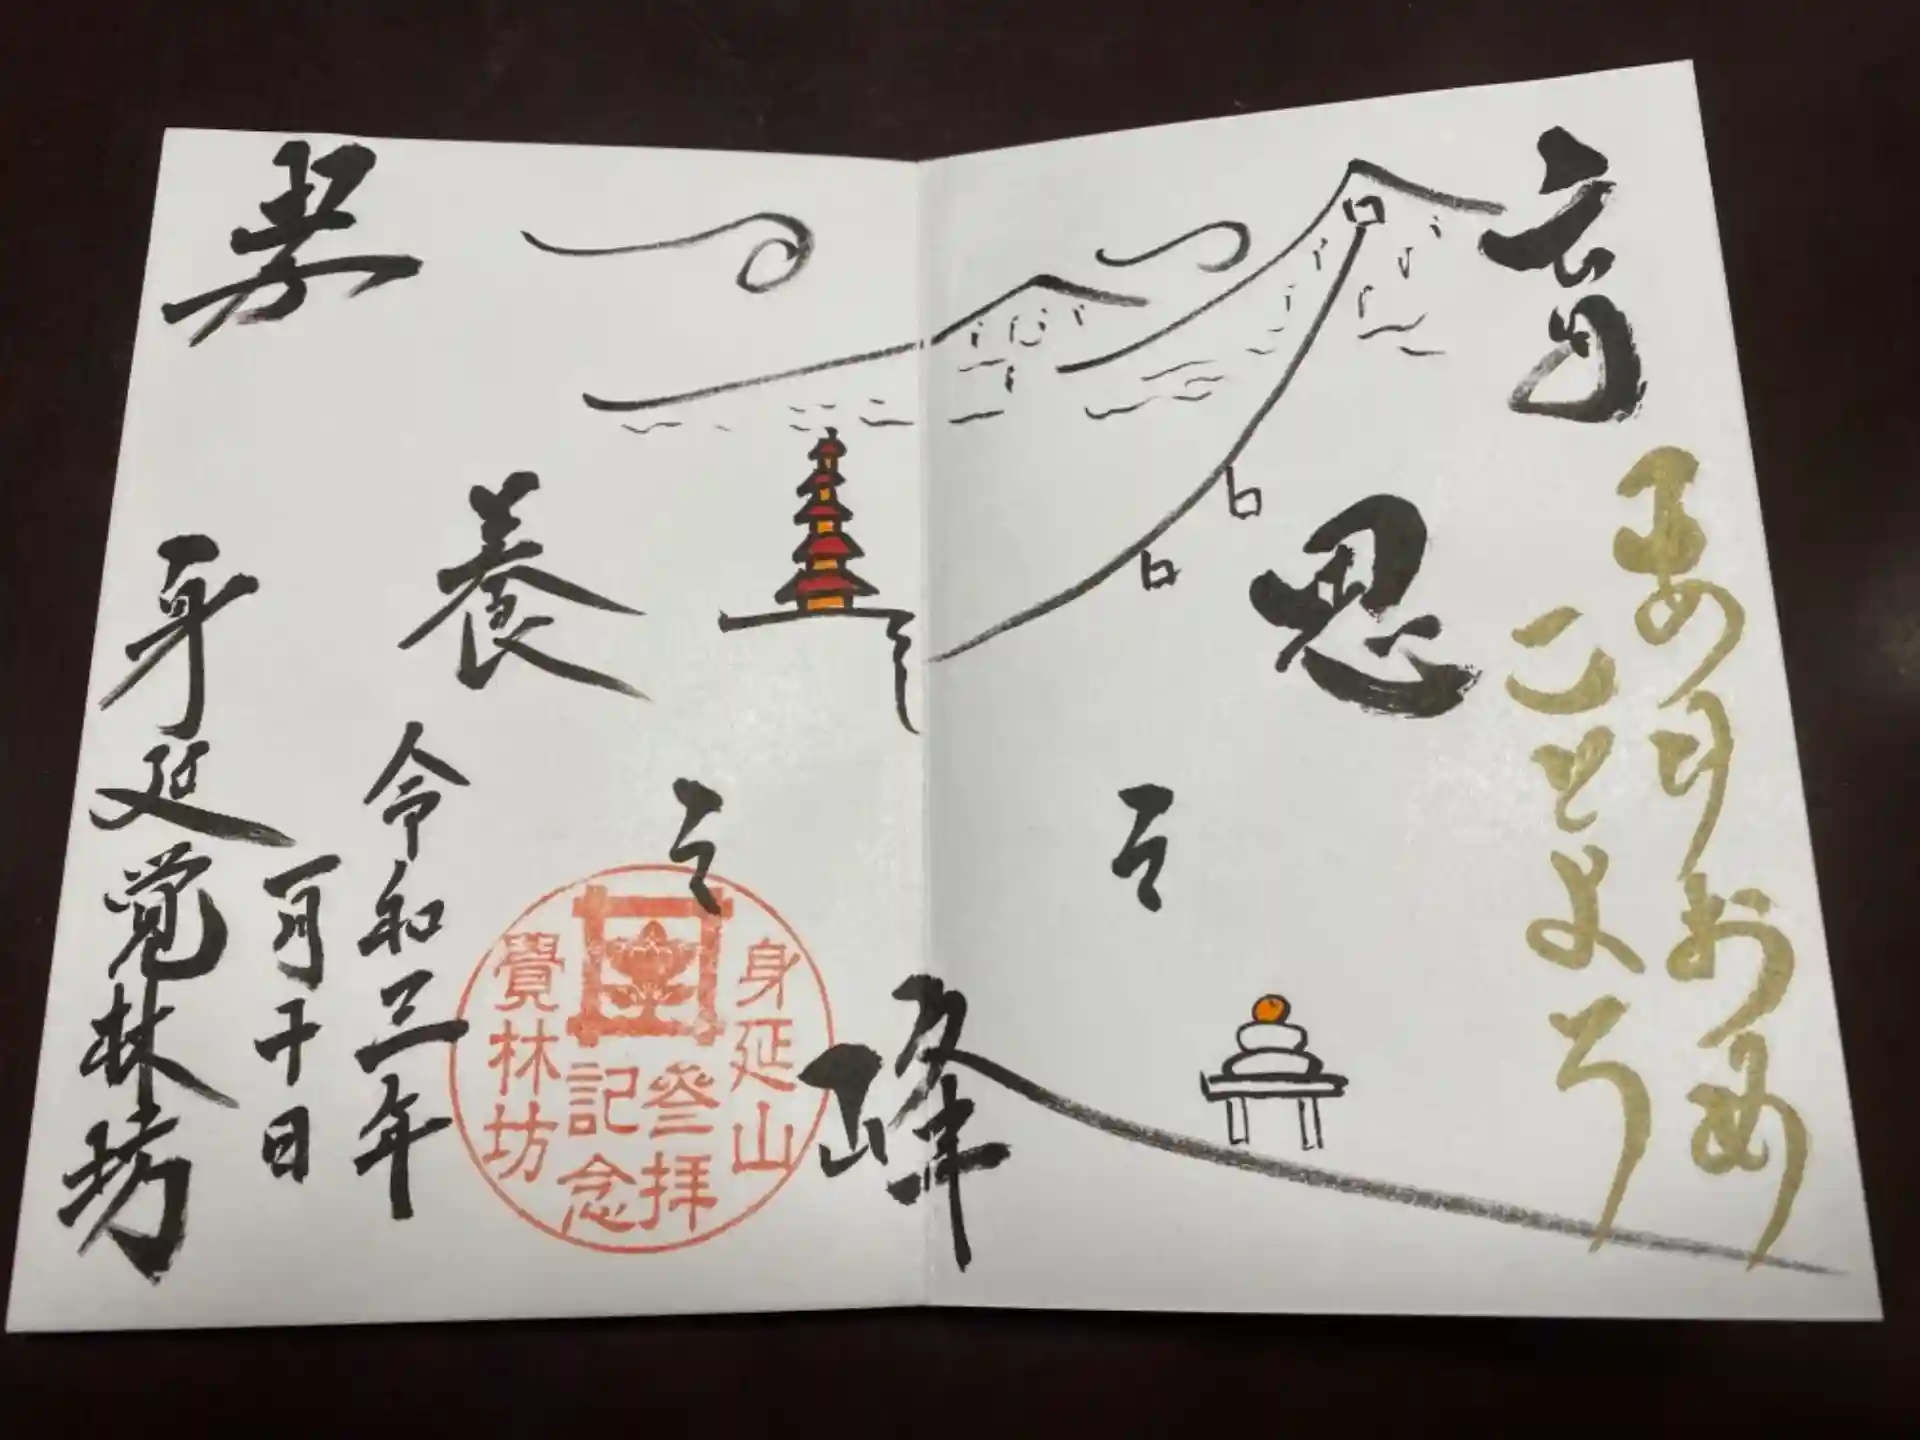 あけおめ
ことよろ
育恩之峰
養之
令和三年
一月十日
身延覚林坊
身延山
參拝
記念
覺林坊